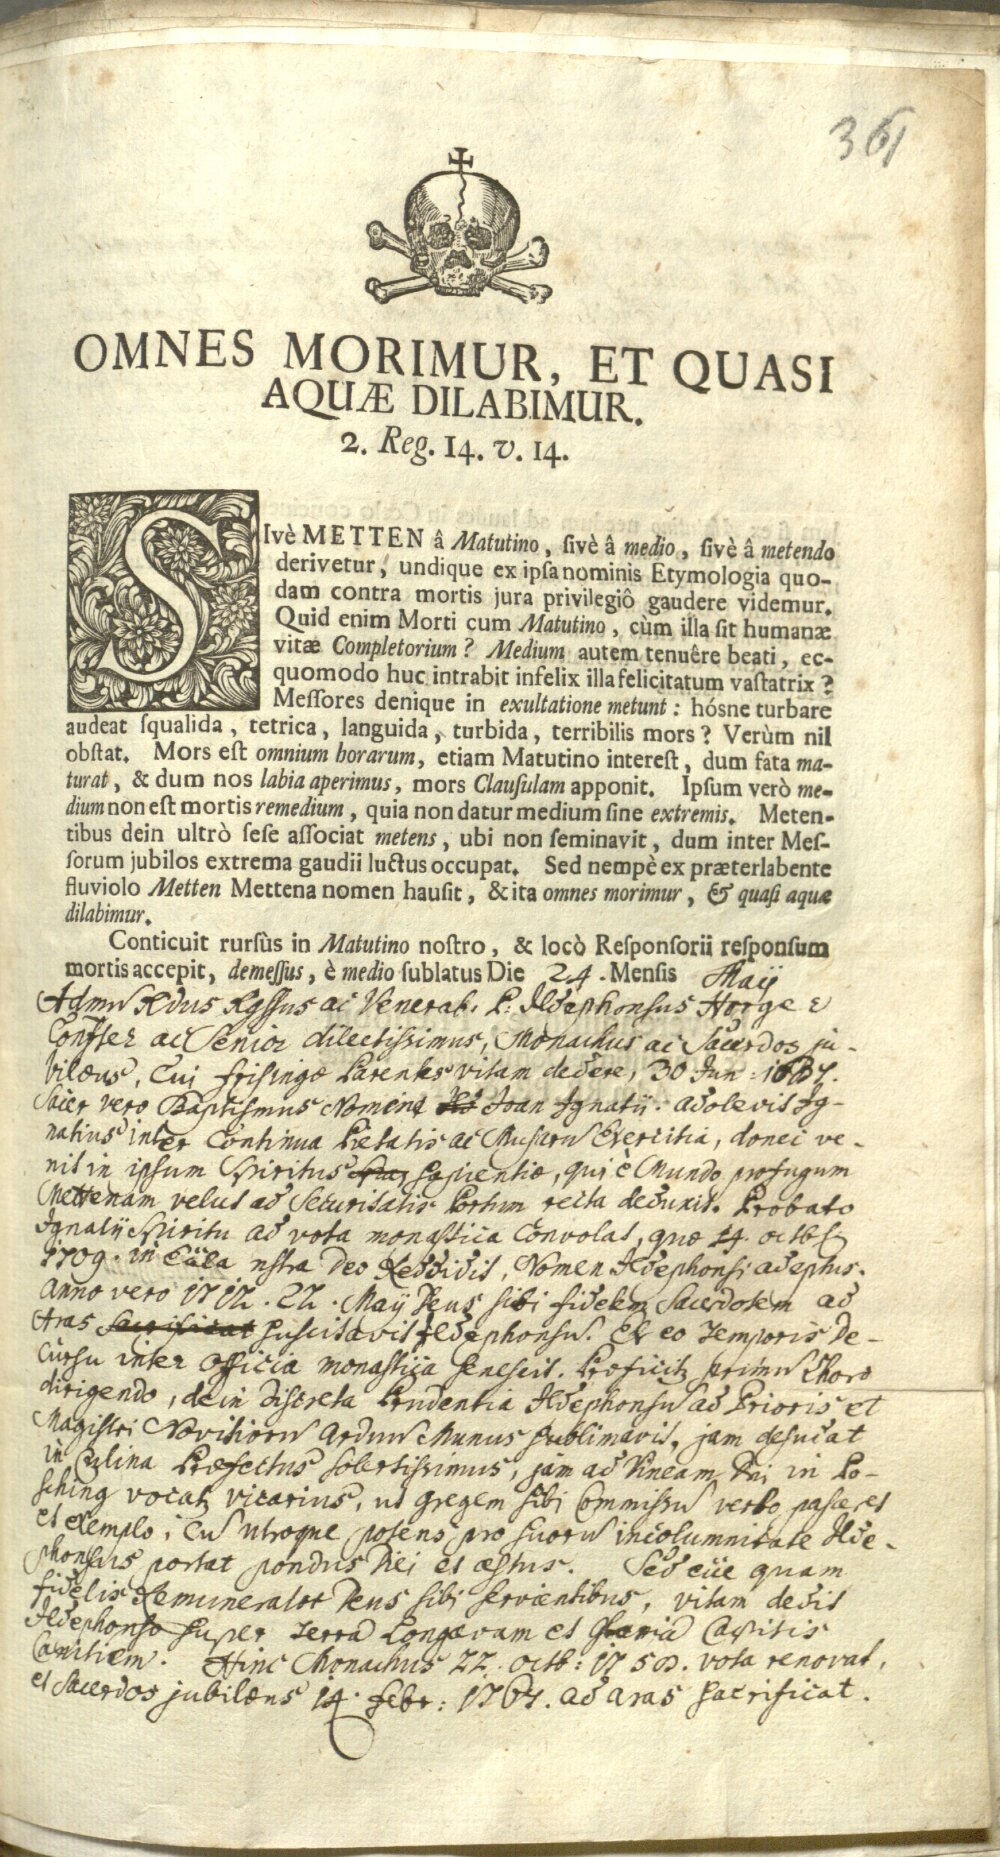 361
OMNES MORIMUR, ET QUASI
AQUÆ DILABIMUR.
2. Reg. 14. v. 14.
SIvè METTEN â Matutino, sivè â medio, sivè â metendo
derivetur, undique ex ipsa nominis Etymologia quo-
dam contra mortis jura privilegiô gaudere videmur.
Quid enim Morti cum Matutino, cùm illa sit humanæ
vitæ Completorium? Medium autem tenuêre beati, ec-
quomodo huc intrabit infelix illa felicitatum vastatrix?
Messores denique in exultatione metunt: hósne turbare
audeat squalida, tetrica, languida, turbida, terribilis mors? Verùm nil
obstat. Mors est omnium horarum, etiam Matutino interest, dum fata ma-
turat, & dum nos labia aperimus, mors Clausulam apponit. Ipsum verò me-
dium non est mortis remedium, quia non datur medium sine extremis. Meten-
tibus dein ultrò sese associat metens, ubi non seminavit, dum inter Mes-
sorum jubilos extrema gaudii luctus occupat. Sed nempè ex præterlabente
fluviolo Metten Mettena nomen hausit, & ita omnes morimur, & quasi aquæ
dilabimur.
Conticuit rursùs in Matutino nostro, & locò Responsorii responsum
mortis accepit, demessus, è medio sublatus Die 24. Mensis Maij
ac Venerab. P. Ildephonsus Horger
ac Senior dilectissimus, Monachus ac Sacerdos ju-
bilæus, Cui Frisingæ Parentes vitam dedere, 30 Jun: 1687.
Sacer vero Baptismus Nomina Joan Ignatij. adolevit Ig-
natius inter Continua Pietatis ac Musarū Exercitia, donec ve-
nit in ipsum Spiritus Sapientiæ, qui è Mundo profugum
Mettenam velut ad Securitatis Portum recta deduxit. Probato
Ignatij Spiritu ad vota monastica Convolat, quæ 14. octb
1709. in nstra Deo Reddidit, Nomen Ildephonsi adeptus.
Anno vero 1712. 22. Maij Deus sibi fidelem Sacerdotem ad
Aras sacrificat suscitavit Ildephonsū. Ex eo Temporis De-
cursu inter Officia monastica senescit. Proficit primū Choro
dirigendo, dein discreta Prudentia Ildephonsū ad Prioris et
Magistri Novitiorū arduū Munus sublimavit, jam desudat
in Culina Præfectus solertissimus, jam ad Vineam Dni in Po-
sching vocat vicarius, ut gregem sibi Commissū verbo pasceret
et exemplo; utroque potens pro suorū incolumitate Ilde-
phonsus portat pondus Diei et æstus. Sed quam
fidelis Remunerator Deus sibi servientibus, vitam dedit
Ildephonso super Terrā Longævam et Capitis
Canitiem. Hinc Monachus 22. octb: 1759. vota renovat,
et Sacerdos jubilæus 14. febr: 1767. ad aras sacrificat.